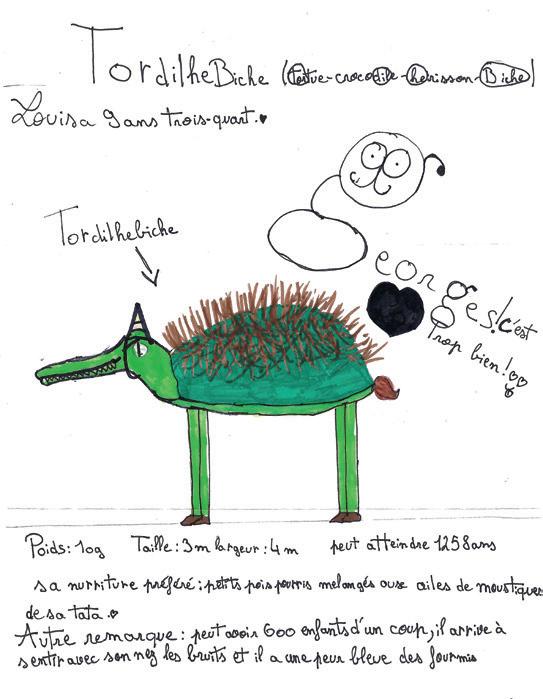 TordilheBiche (tortue-crocodile-hérisson-Biche)
Louisa 9 ans trois-quart.♥
Tordilhebiche
Georges! c'est
Trop bien!
Poids: 10g Taille: 3m largeur: 4m peut atteindre 1258ans
sa nurriture préféré: petits pois pourris melangés aux ailes de moustiques
de sa tata.♥
Autre remarque: peut avoir 600 enfants d'un coup, il arrive à
sentir avec son nez les bruits et il a une peur bleue des fourmis